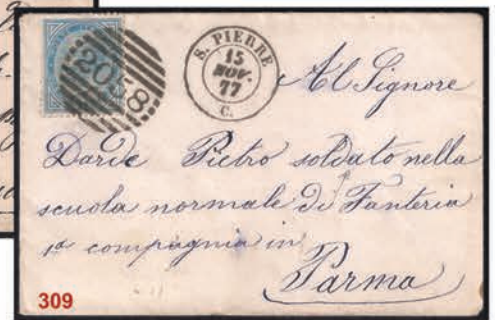 2058
S. PIERRE
15
NOV.
77
C.
Al Signore
Darde Pietro soldato nella
scuola normale di Fanteria
1ª compagnia in
Parma
309